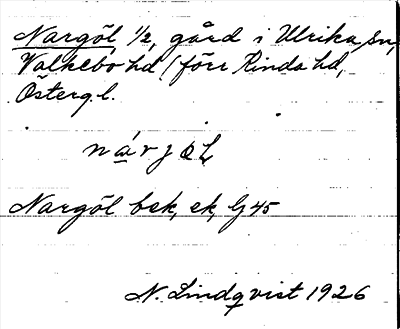 Nargöl 1/2, gård i Ulrika sn,
Valkebo hd (förr Kinda hd,
Östergl.
Nargöl bek, ek, G45
N. Lindqvist 1926